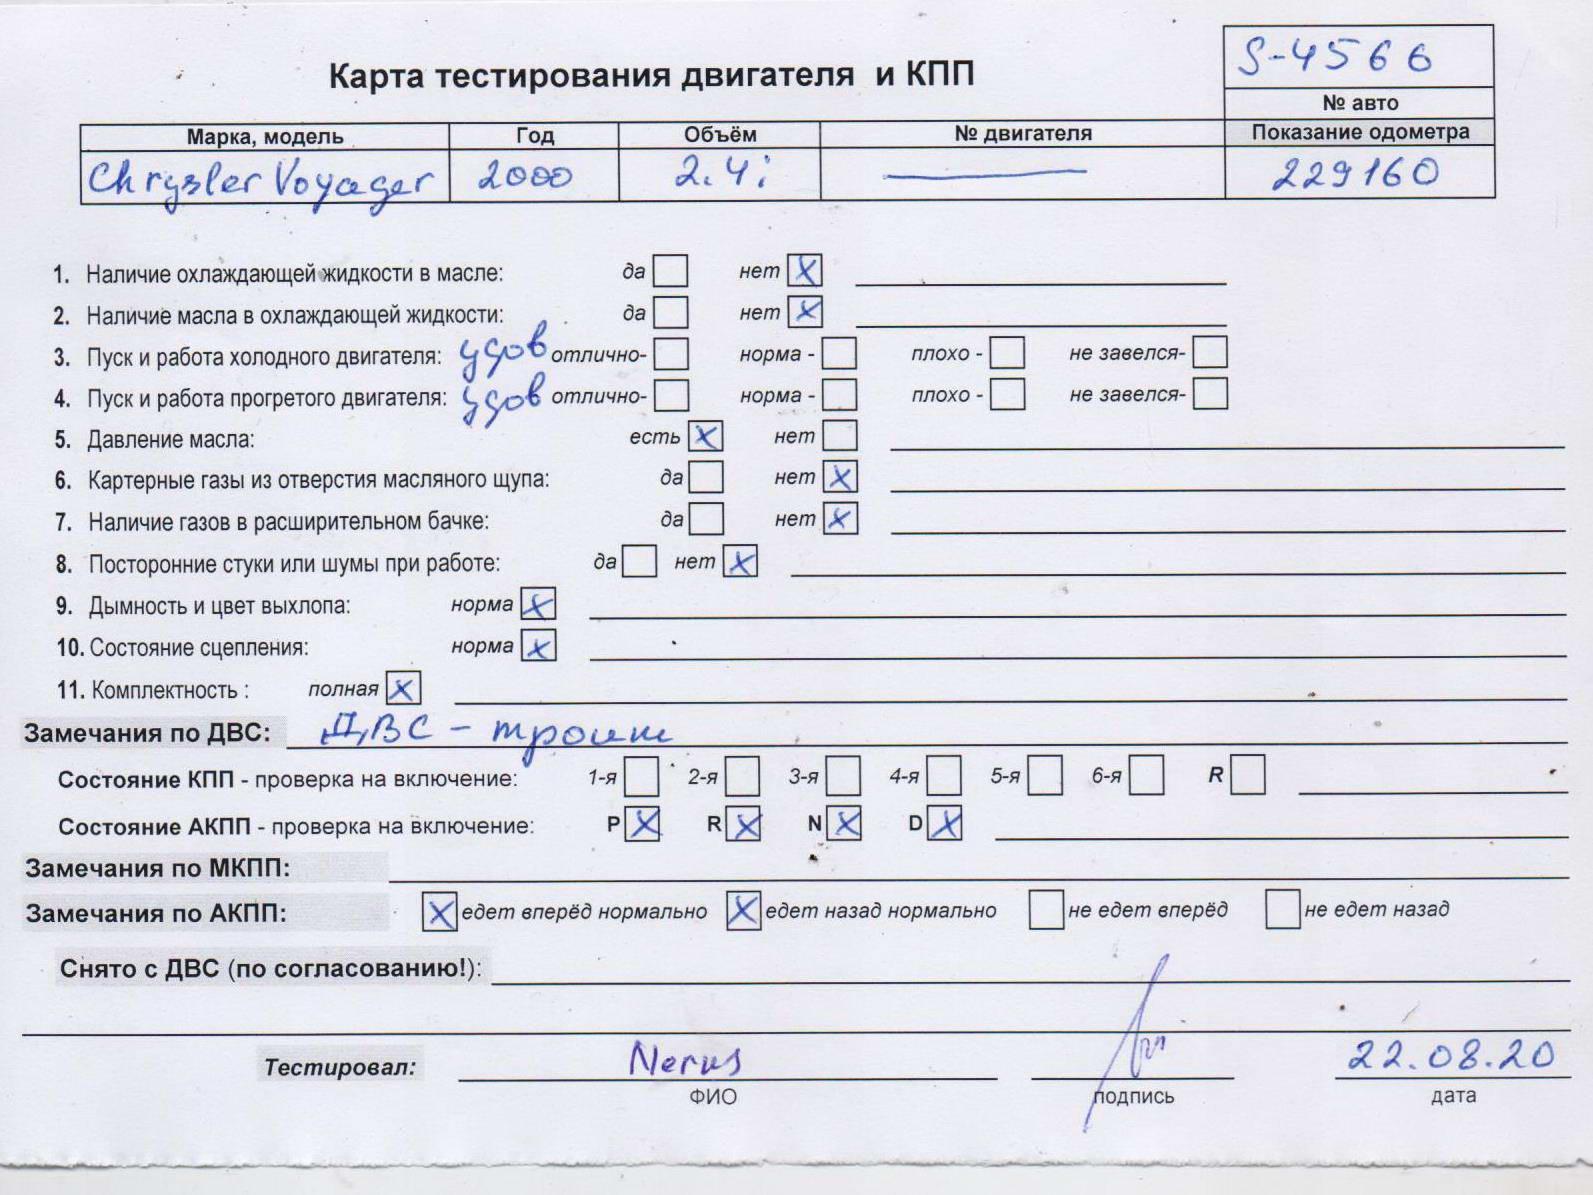 S-4566
Карта тестирования двигателя и КПП
№ авто
Марка, модель Год Объём № двигателя Показание одометра
Chrysler Voyager 2000 2.4i — 229160
1. Наличие охлаждающей жидкости в масле: да нет x
2. Наличие масла в охлаждающей жидкости: да нет x
3. Пуск и работа холодного двигателя: удов отлично- норма - плохо - не завелся-
4. Пуск и работа прогретого двигателя: удов отлично- норма - плохо - не завелся-
5. Давление масла: есть x нет
6. Картерные газы из отверстия масляного щупа: да нет x
7. Наличие газов в расширительном бачке: да нет x
8. Посторонние стуки или шумы при работе: да нет x
9. Дымность и цвет выхлопа: норма x
10. Состояние сцепления: норма x
11. Комплектность : полная x
Замечания по ДВС: ДВС - троит
Состояние КПП - проверка на включение: 1-я 2-я 3-я 4-я 5-я 6-я R
Состояние АКПП - проверка на включение: P x R x N x D x
Замечания по МКПП:
Замечания по АКПП: x едет вперёд нормально x едет назад нормально не едет вперёд не едет назад
Снято с ДВС (по согласованию!):
Тестировал: 22.08.20
ФИО подпись дата